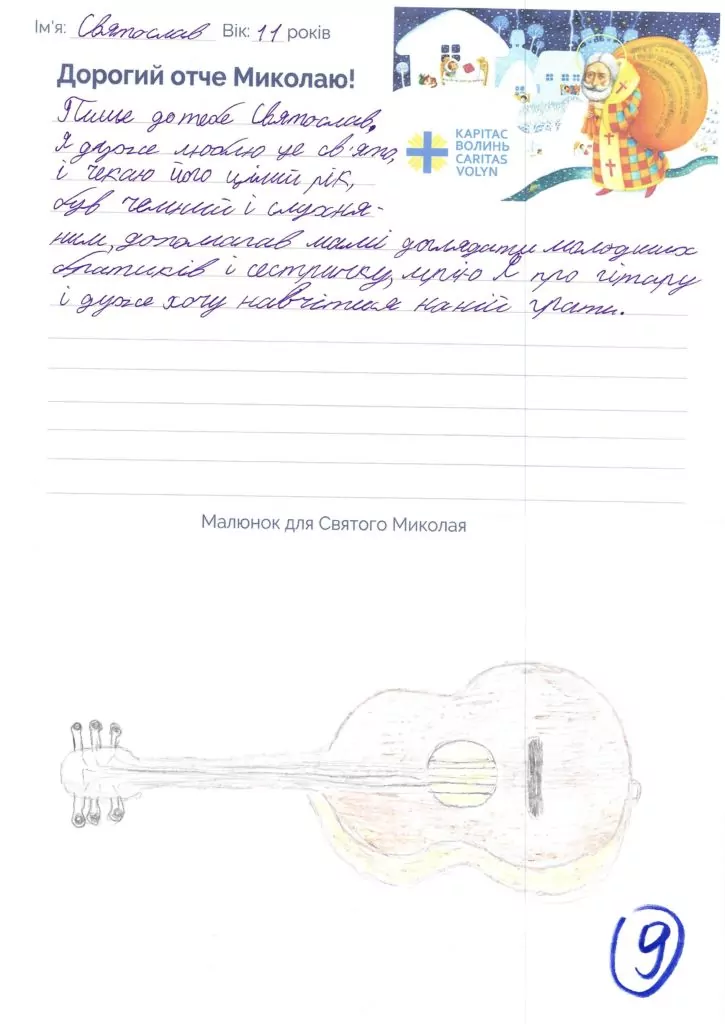 Ім'я: Святослав Вік: 11 років
Дорогий отче Миколаю!
КАРІТАС
ВОЛИНЬ
CARITAS
VOLYN
Пише до тебе Святослав,
Я дуже люблю це св'ято,
і чекаю його цілий рік,
був чемний і слухня-
ним, допомагав мамі доглядати молодших
братиків і сестричку, мрію я про гітару
і дуже хочу навчітися наній грати.
Малюнок для Святого Миколая
9